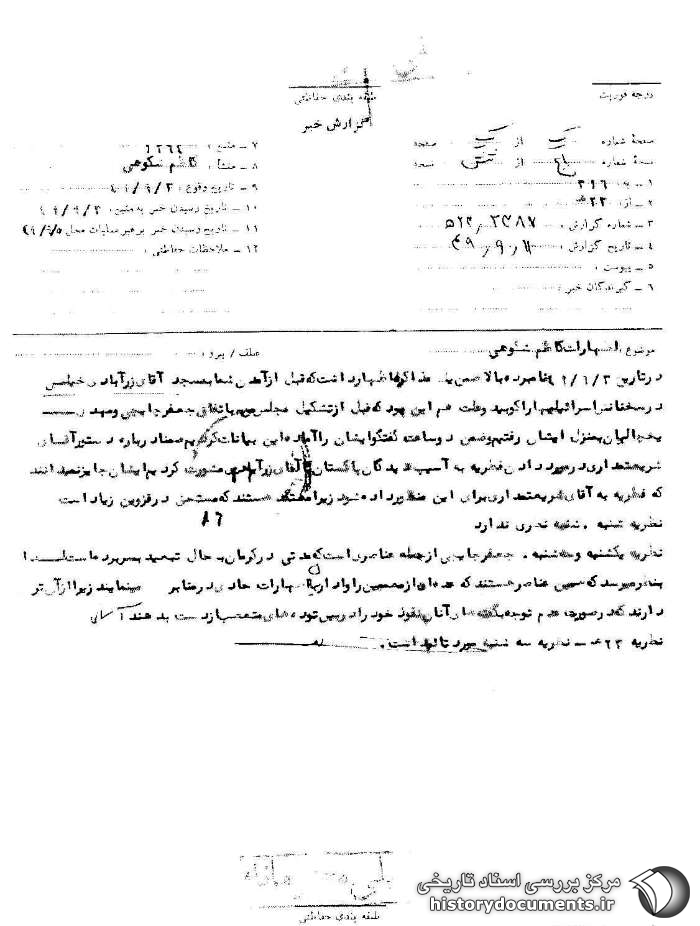 درجهٔ فوریت
طبقه بندی حفاظتی
گزارش خبر
صفحهٔ شماره یک از یک صفحه
نسخهٔ شماره پنج از شش نسخه
۱ ـ به: ۳۱۶
۲ ـ از: ۲۲ ه
۳ ـ شماره گزارش: ۲۳۸۷ر۵۲۲
۴ ـ تاریخ گزارش: ۱۱ر۹ر۴۹
۵ ـ پیوست:
۶ ـ گیرندگان خبر:
۷ ـ منبع: ۱۲۶۴
۸ ـ منشأ: کاظم شکوهی
۹ ـ تاریخ وقوع: ۴۹/۹/۳
۱۰ ـ تاریخ رسیدن خبر به منبع: ۴۹/۹/۳
۱۱ ـ تاریخ رسیدن خبر به رهبر عملیات محل: ۴۹/۹/۵
۱۲ ـ ملاحظات حفاظتی:
موضوع: اظهارات کاظم شکوهی
عطف / پیرو:
در تاریخ ۴۹/۹/۳ نامبرده بالا ضمن یک مذاکره اظهار داشت که قبل از آمدن شما به مسجد آقای زرآبادی خیلی
در سخنانش اسرائیلیها را کوبید و علت هم این بود که قبل از تشکیل مجلس من به اتفاق جعفر حاجبی و مهدی
یخچالیان به منزل ایشان رفتیم و ضمن دو ساعت گفتگو ایشان را آماده این بیانات کردیم ضمنا درباره دستور آقای
شریعتمداری در مورد دادن فطریه به آسیب دیدگان پاکستان با آقای زرآبادی مشورت کردیم ایشان جایز نمیدانند
که فطریه به آقای شریعتمداری برای این منظور داده شود زیرا معتقد هستند که مستحق در قزوین زیاد است
۸۶
نظریه شنبه . شنبه نظری ندارد
نظریه یکشنبه و سه شنبه . جعفر حاجبی از جمله عناصری است که مدتی در کرمان به حال تبعید بسر برده است لذا
بنظر میرسد که همین عناصر هستند که عده ای از معممین را وادار به اظهارات حادی در منابر مینمایند زیرا از آن
دارند که در صورت عدم توجه به گفته های آنان نفوذ خود را در بین توده های متعصب از دست بدهند
نظریه ۲۳ ه ـ نظریه سه شنبه مورد تائید است .
طبقه بندی حفاظتی
مرکز بررسی اسناد تاریخی
historydocuments.ir